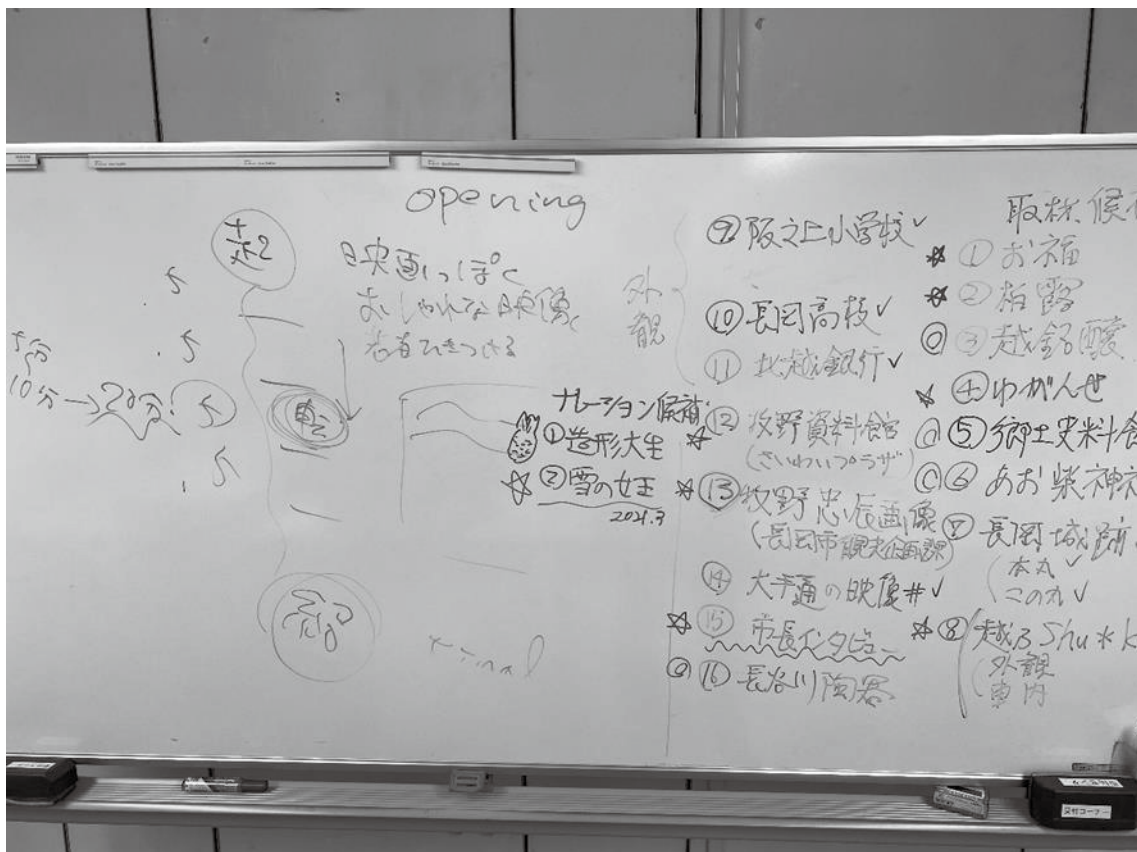 opening
起
映画っぽく
おしゃれな映像
若者ひきつける
10分→20分
転
結
final
ナレーション候補
①造形大生
②雪の女王
2021.3
外観
⑨阪之上小学校✓
⑩長岡高校✓
⑪北越銀行✓
⑫牧野資料館
(さいわいプラザ)
☆⑬牧野忠辰画像
(長岡市観光企画課)
⑭大手通の映像#✓
☆⑮市長インタビュー
◎⑯長谷川陶器
取材候
☆①お福
☆②柏露
◎③越銘醸
☆④わがんせ
◎⑤郷土史料館
◎⑥あお柴神社
⑦長岡城跡
本丸✓
二の丸✓
☆⑧越乃Shu*K
外観
車内